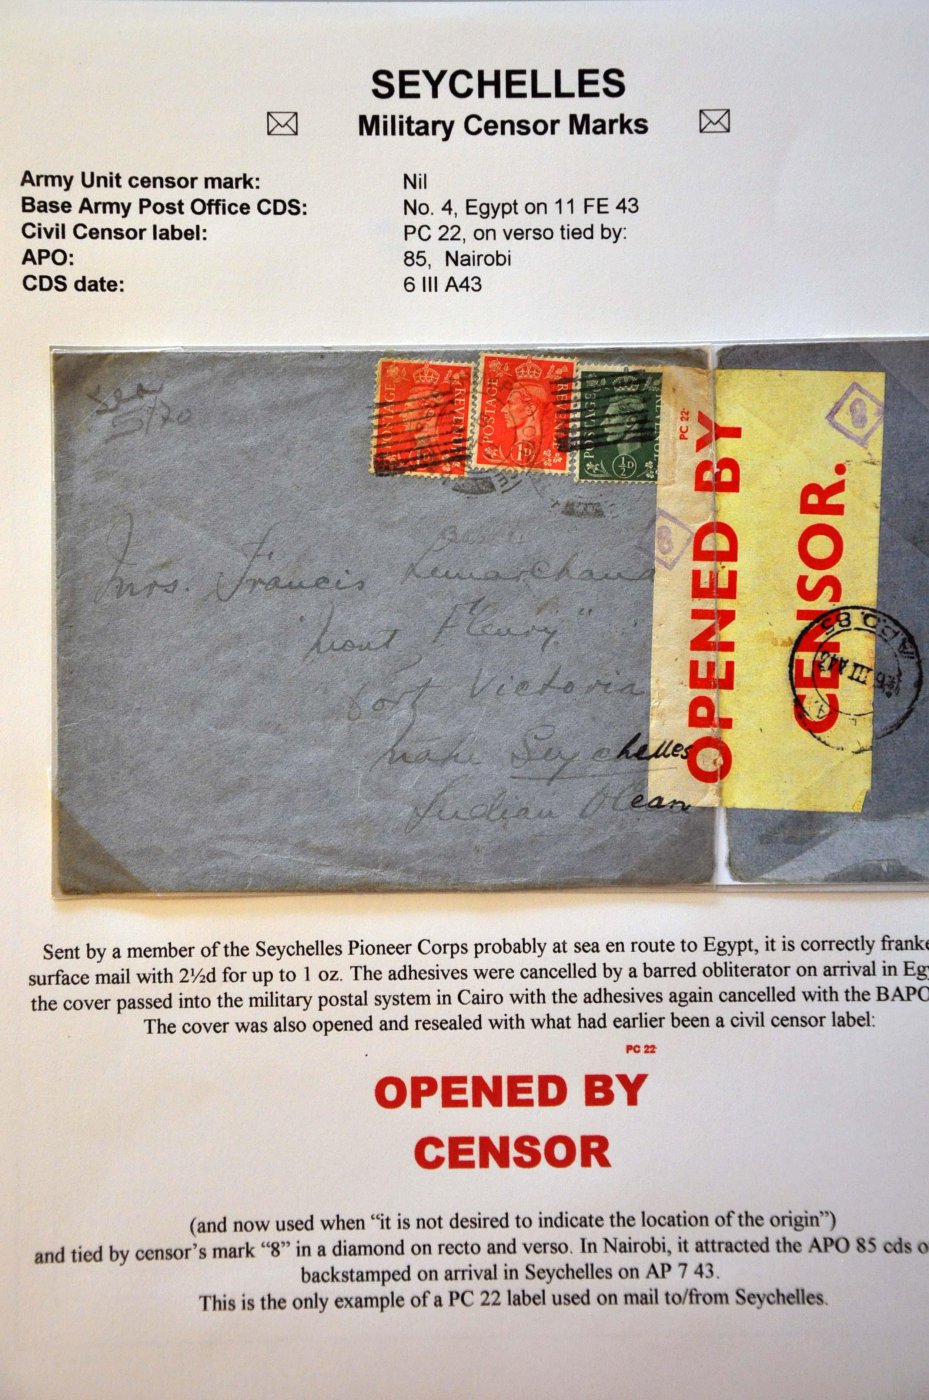 SEYCHELLES
Military Censor Marks
Army Unit censor mark: Nil
Base Army Post Office CDS: No. 4, Egypt on 11 FE 43
Civil Censor label: PC 22, on verso tied by:
APO: 85, Nairobi
CDS date: 6 III A43
Sea
POSTAGE REVENUE
POSTAGE REVENUE 1D
POSTAGE ½D
PC 22
OPENED BY
CENSOR.
8
8
A.P.O. 85
6 III A43
Mrs. Francis Lemarchand
"Mont Fleury"
Port Victoria
Mahe Seychelles
Indian Ocean
Sent by a member of the Seychelles Pioneer Corps probably at sea en route to Egypt, it is correctly franke
surface mail with 2½d for up to 1 oz. The adhesives were cancelled by a barred obliterator on arrival in Eg
the cover passed into the military postal system in Cairo with the adhesives again cancelled with the BAPO
The cover was also opened and resealed with what had earlier been a civil censor label:
PC 22
OPENED BY
CENSOR
(and now used when "it is not desired to indicate the location of the origin")
and tied by censor's mark "8" in a diamond on recto and verso. In Nairobi, it attracted the APO 85 cds o
backstamped on arrival in Seychelles on AP 7 43.
This is the only example of a PC 22 label used on mail to/from Seychelles.